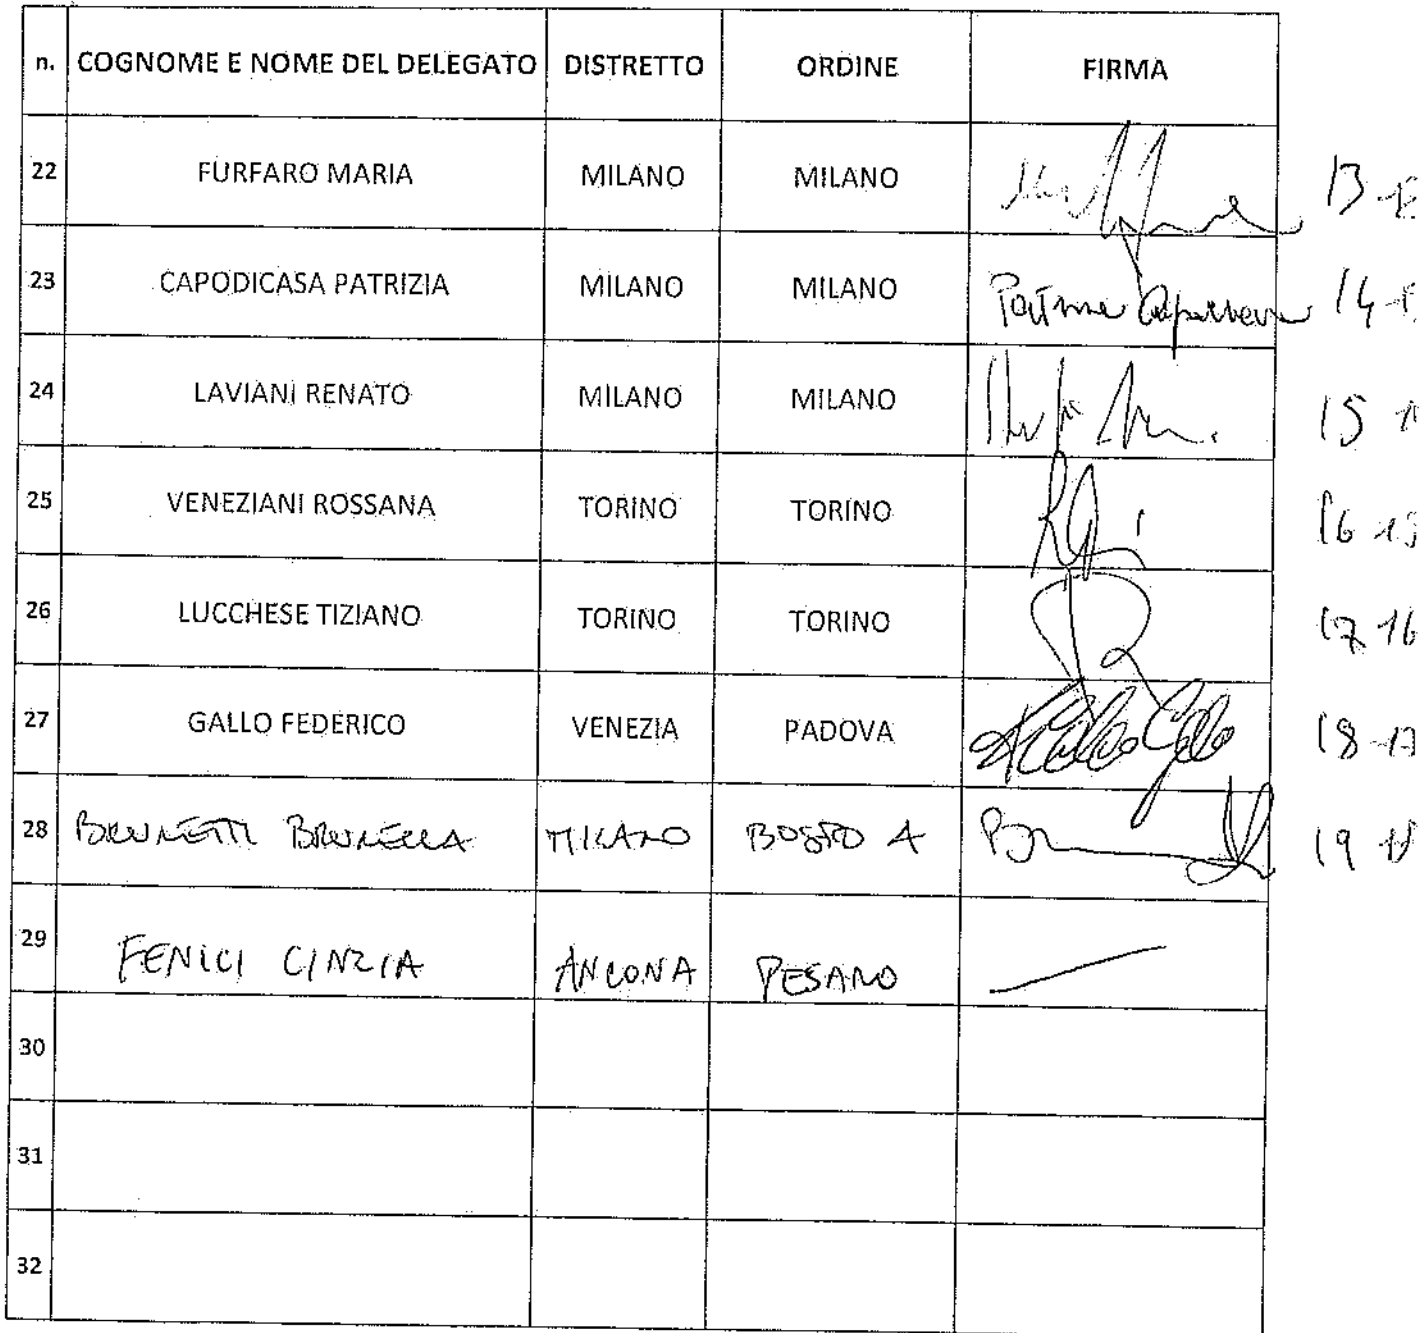 n. COGNOME E NOME DEL DELEGATO DISTRETTO ORDINE FIRMA
22 FURFARO MARIA MILANO MILANO 13
23 CAPODICASA PATRIZIA MILANO MILANO 14
24 LAVIANI RENATO MILANO MILANO 15
25 VENEZIANI ROSSANA TORINO TORINO 16
26 LUCCHESE TIZIANO TORINO TORINO 17 16
27 GALLO FEDERICO VENEZIA PADOVA 18 17
28 BRUNETTI BRUNELLA MILANO BUSTO A 19 18
29 FENICI CINZIA ANCONA PESARO
30
31
32